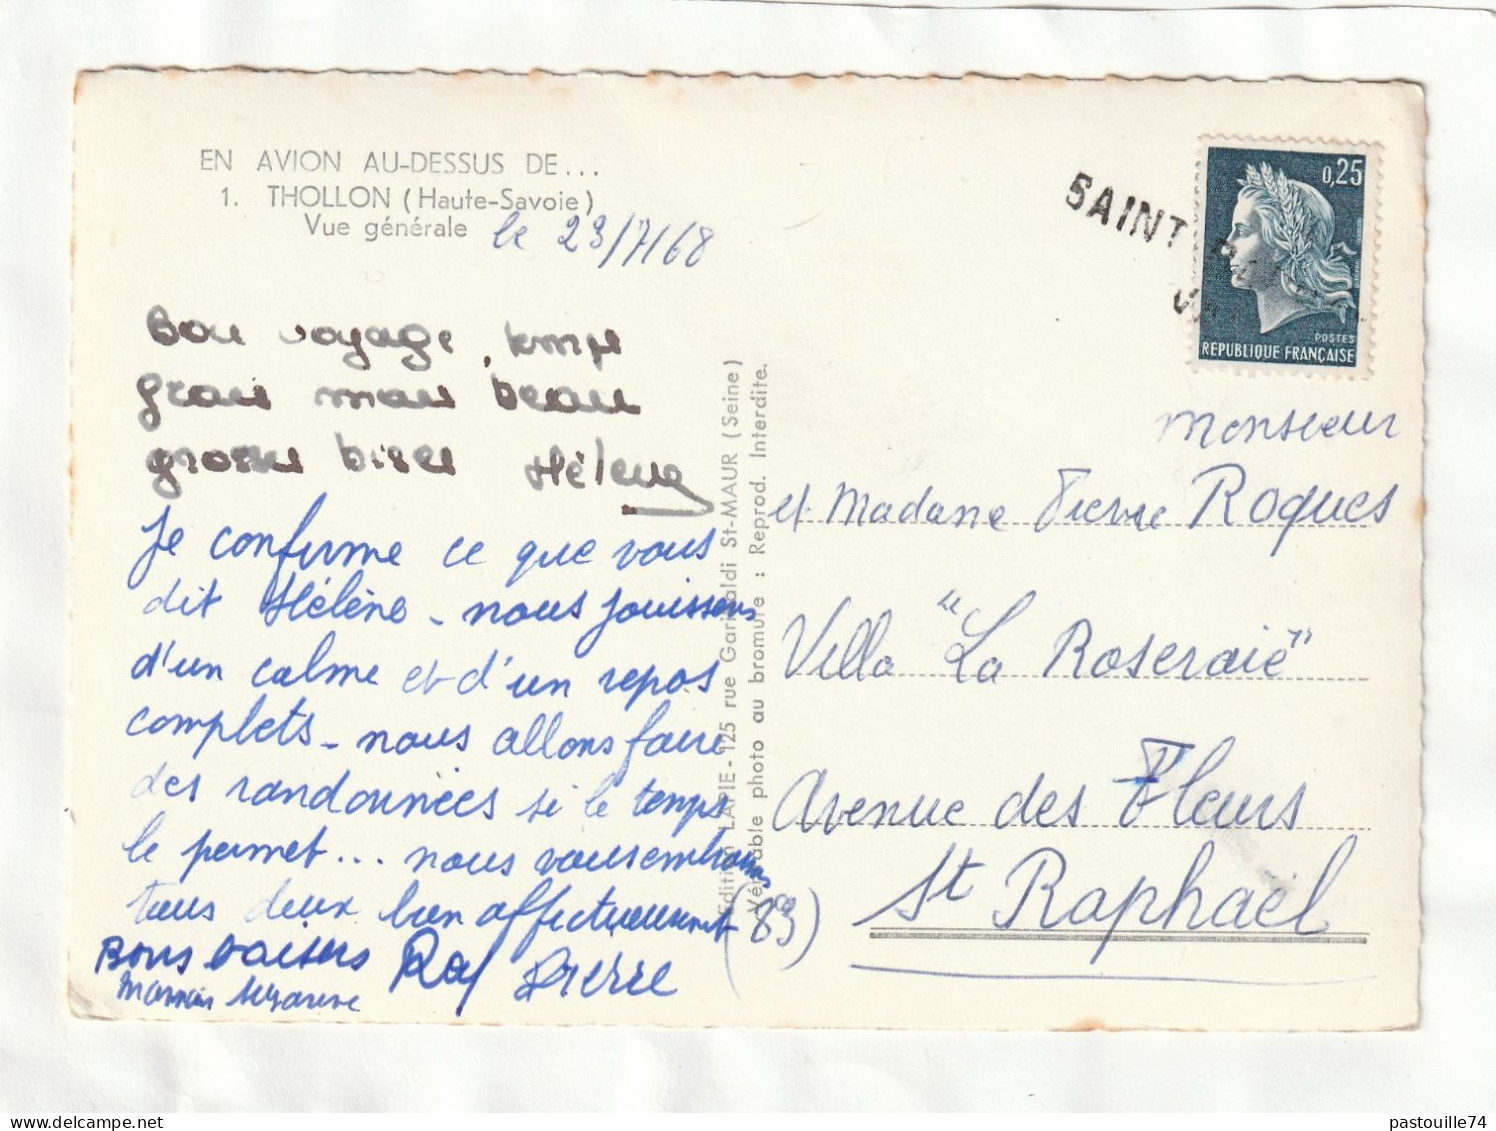 EN AVION AU-DESSUS DE...
1. THOLLON (Haute-Savoie)
Vue générale
le 23/7/68
Bon voyage, temps
frais mais beau
grosses bises Hélène
Je confirme ce que vous
dit Hélène - nous jouissons
d'un calme et d'un repos
complets - nous allons faire
des randonnées si le temps
le permet... nous vous embrassons
tous deux bien affectueusement
Bons baisers Pierre
Maman Suzanne
Edition LAPIE - 125 rue Garibaldi St-MAUR (Seine)
Véritable photo au bromure : Reprod. Interdite.
SAINT
0,25
POSTES
REPUBLIQUE FRANÇAISE
Monsieur
et Madame Pierre Roques
Villa "La Roseraie"
Avenue des Fleurs
(83) St Raphaël
pastouille74